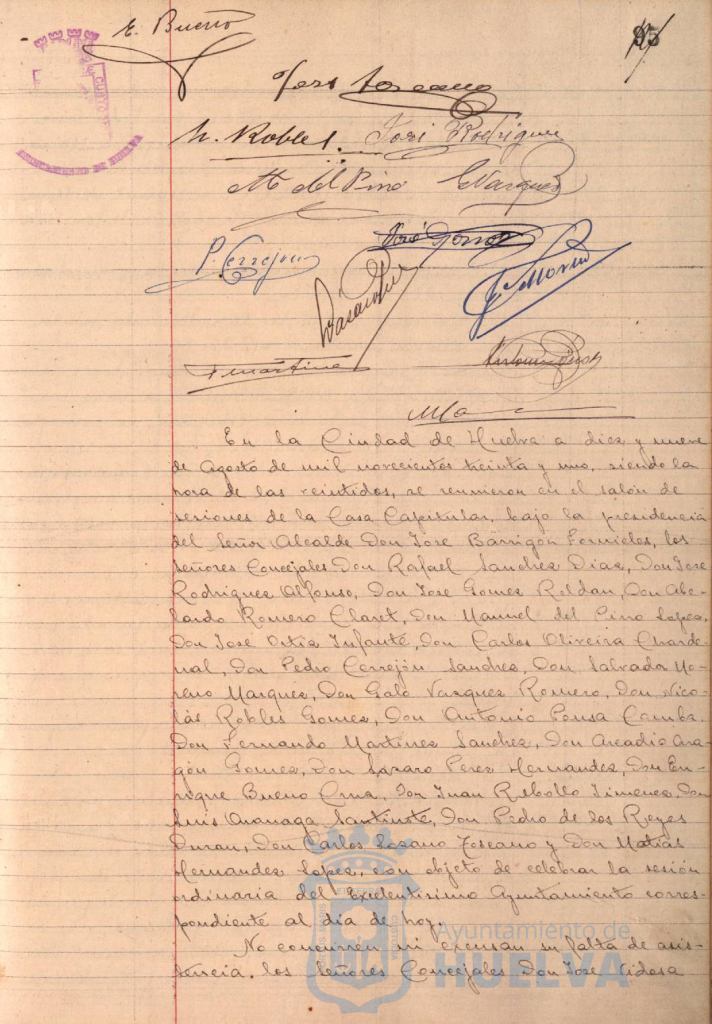 E. Bueno
95
José Lozano
N. Robles. José Rodriguez
M del Pino G Vazquez
P. Cerrejón José Gomez
S. Moreno
F Martinez Antonio Ponsa
En la Ciudad de Huelva a diez y nueve
de Agosto de mil novecientos treinta y uno, siendo la
hora de las veintidos, se reunieron en el salón de
sesiones de la Casa Capitular, bajo la presidencia
del Señor Alcalde Don José Barrigón Fornieles, los
Señores Concejales Don Rafael Sanchez Diaz, Don José
Rodriguez Alfonso, Don José Gomez Roldan, Don Abe-
lardo Romero Claret, Don Manuel del Pino Lopez,
Don José Ortiz Infante, Don Carlos Oliveira Charde-
nal, Don Pedro Cerrejón Sanchez, Don Salvador Mo-
reno Marquez, Don Galo Vazquez Romero, Don Nico-
lás Robles Gomez, Don Antonio Ponsa Camba,
Don Fernando Martinez Sanchez, Don Arcadio Ara-
gón Gomez, Don Lazaro Perez Hernandez, Don En-
rique Bueno Cruz, Don Juan Rebollo Jimenez, Don
Luis Ananaga Santinote, Don Pedro de los Reyes
Duran, Don Carlos Lozano Toscano y Don Matias
Hernandez Lopez, con objeto de celebrar la sesión
ordinaria del Excelentisimo Ayuntamiento corres-
pondiente al dia de hoy.
No concurren ni excusan su falta de asis-
tencia, los Señores Concejales Don José Vidosa
Ayuntamiento de
HUELVA